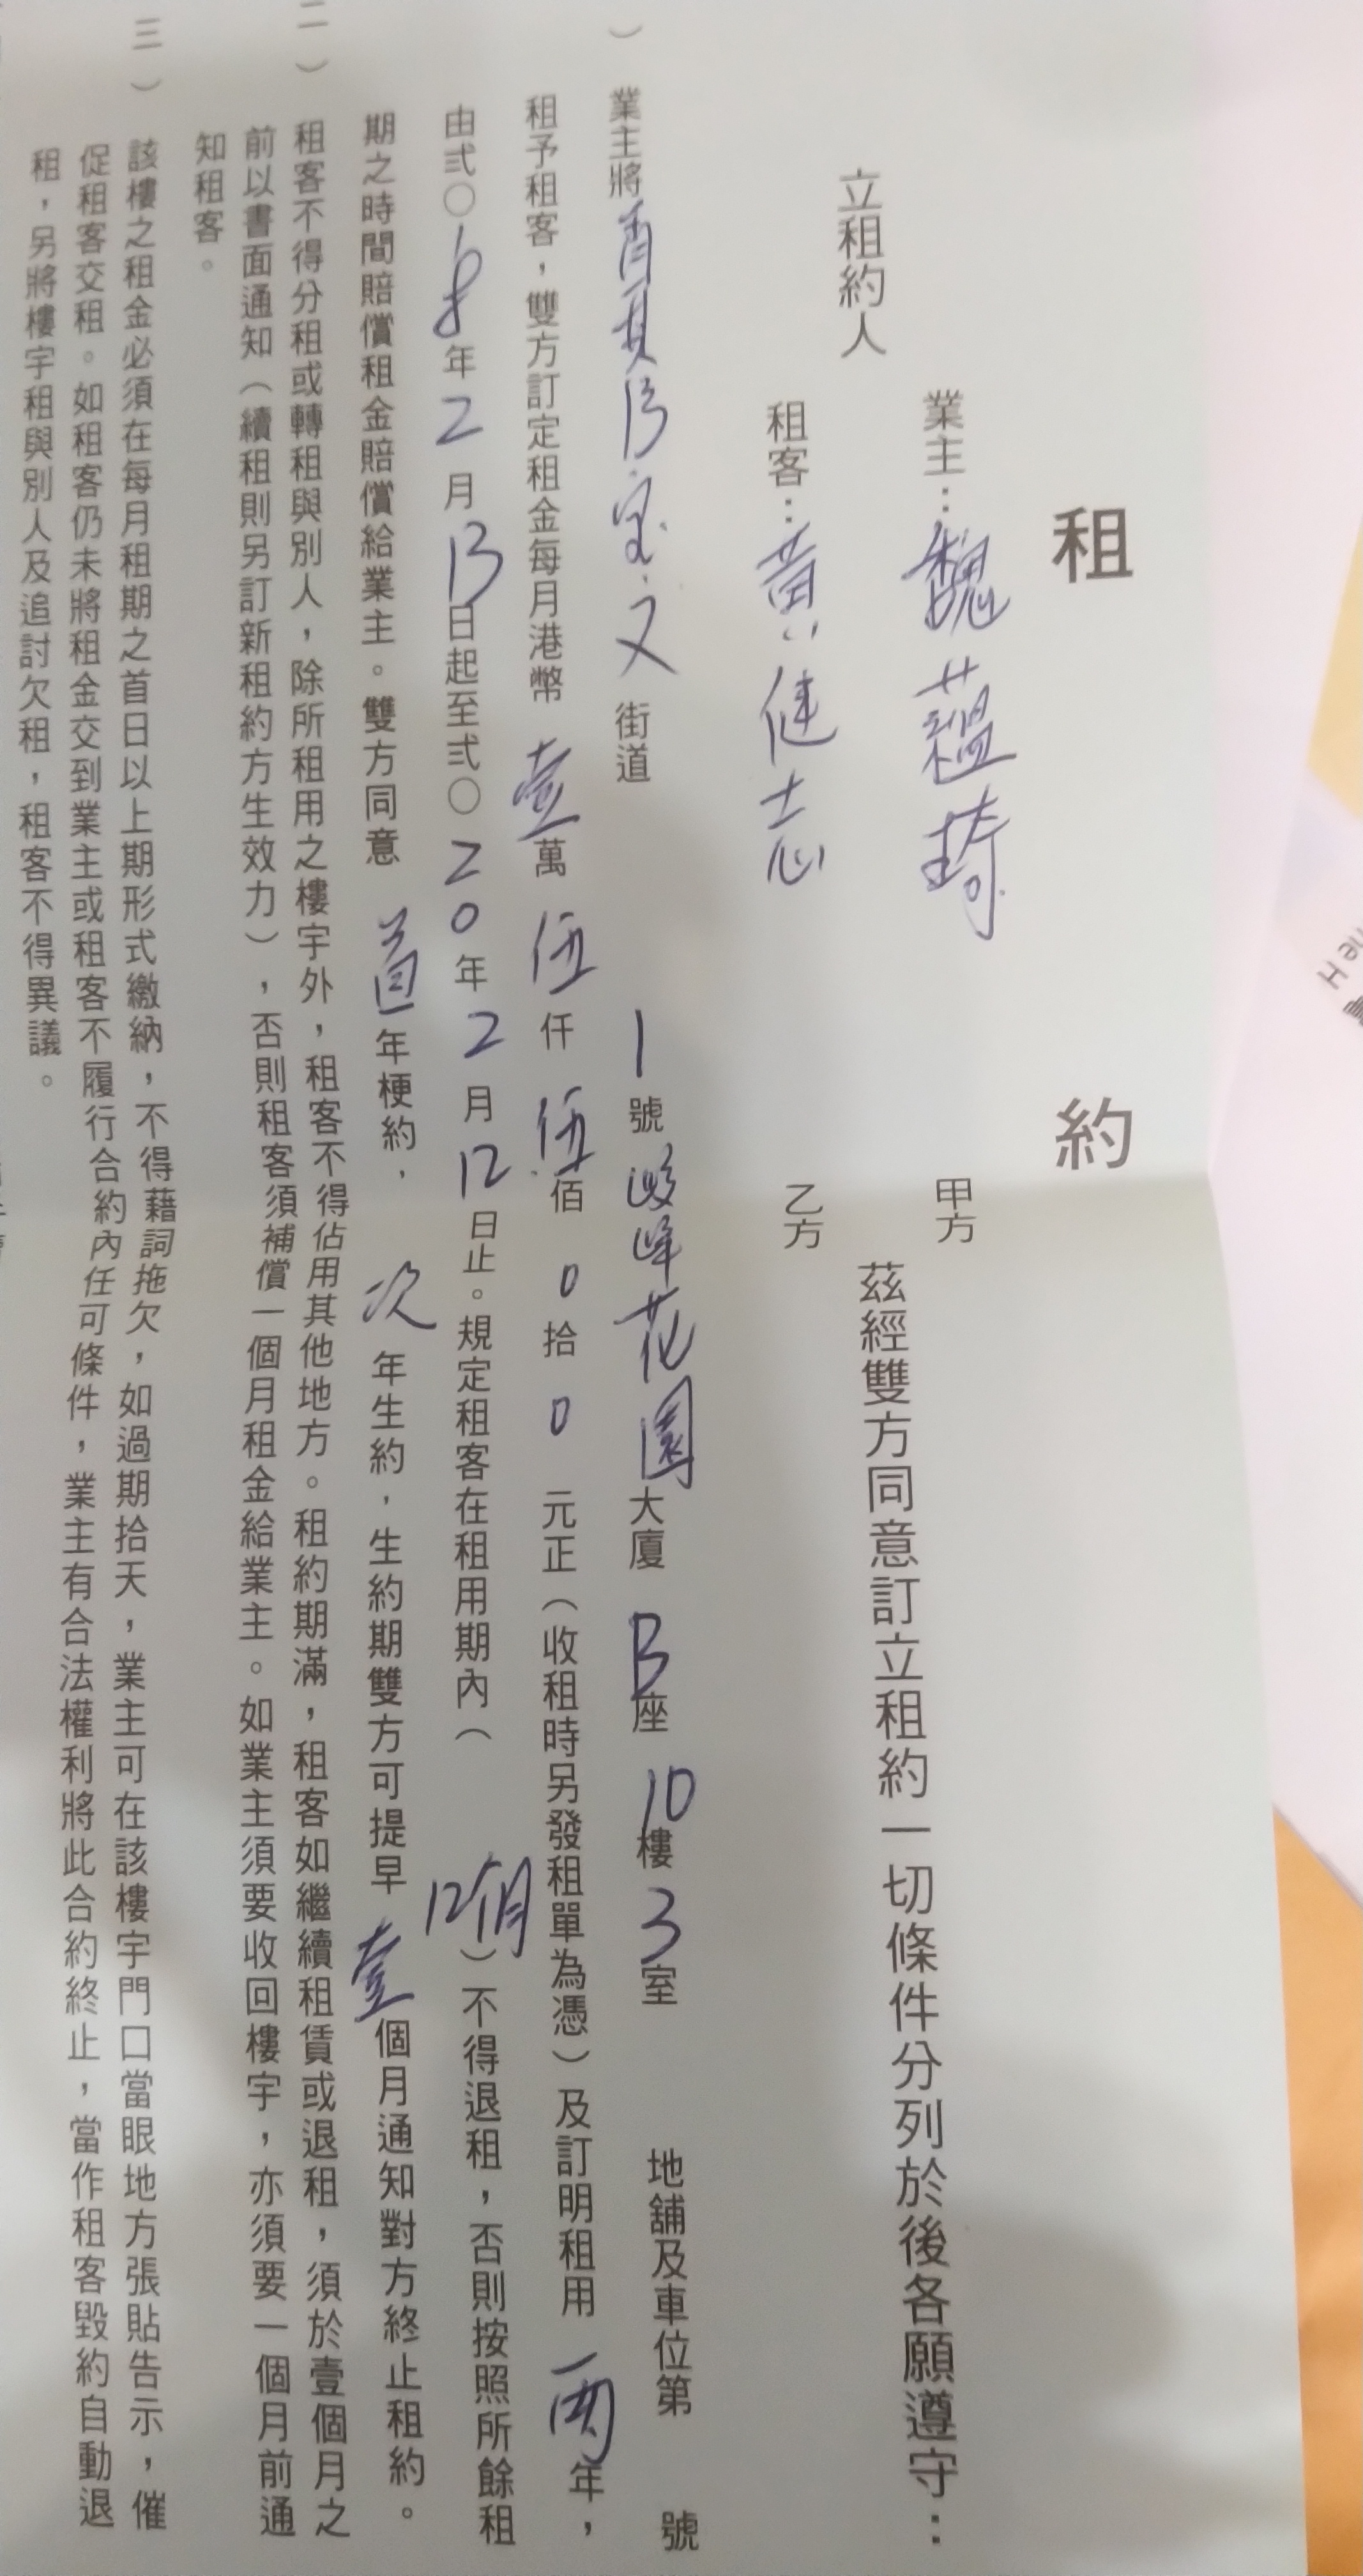 租約
業主：魏蘊琦 甲方
立租約人 茲經雙方同意訂立租約一切條件分列於後各願遵守：
租客：黃健志 乙方
） 業主將 街道 1 號 峻峰花園 大廈 B 座 10 樓 3 室 地舖及車位第 號
租予租客，雙方訂定租金每月港幣 壹 萬 伍 仟 伍 佰 0 拾 0 元正（收租時另發租單為憑）及訂明租用 兩 年，
由弍〇 年 2 月 13 日起至弍〇 20 年 2 月 12 日止。規定租客在租用期內（ 12個月 ）不得退租，否則按照所餘租
期之時間賠償租金賠償給業主。雙方同意 首 年梗約， 次 年生約，生約期雙方可提早 壹 個月通知對方終止租約。
二） 租客不得分租或轉租與別人，除所租用之樓宇外，租客不得佔用其他地方。租約期滿，租客如繼續租賃或退租，須於壹個月之
前以書面通知（續租則另訂新租約方生效力），否則租客須補償一個月租金給業主。如業主須要收回樓宇，亦須要一個月前通
知租客。
三） 該樓之租金必須在每月租期之首日以上期形式繳納，不得藉詞拖欠，如過期拾天，業主可在該樓宇門口當眼地方張貼告示，催
促租客交租。如租客仍未將租金交到業主或租客不履行合約內任可條件，業主有合法權利將此合約終止，當作租客毀約自動退
租，另將樓宇租與別人及追討欠租，租客不得異議。